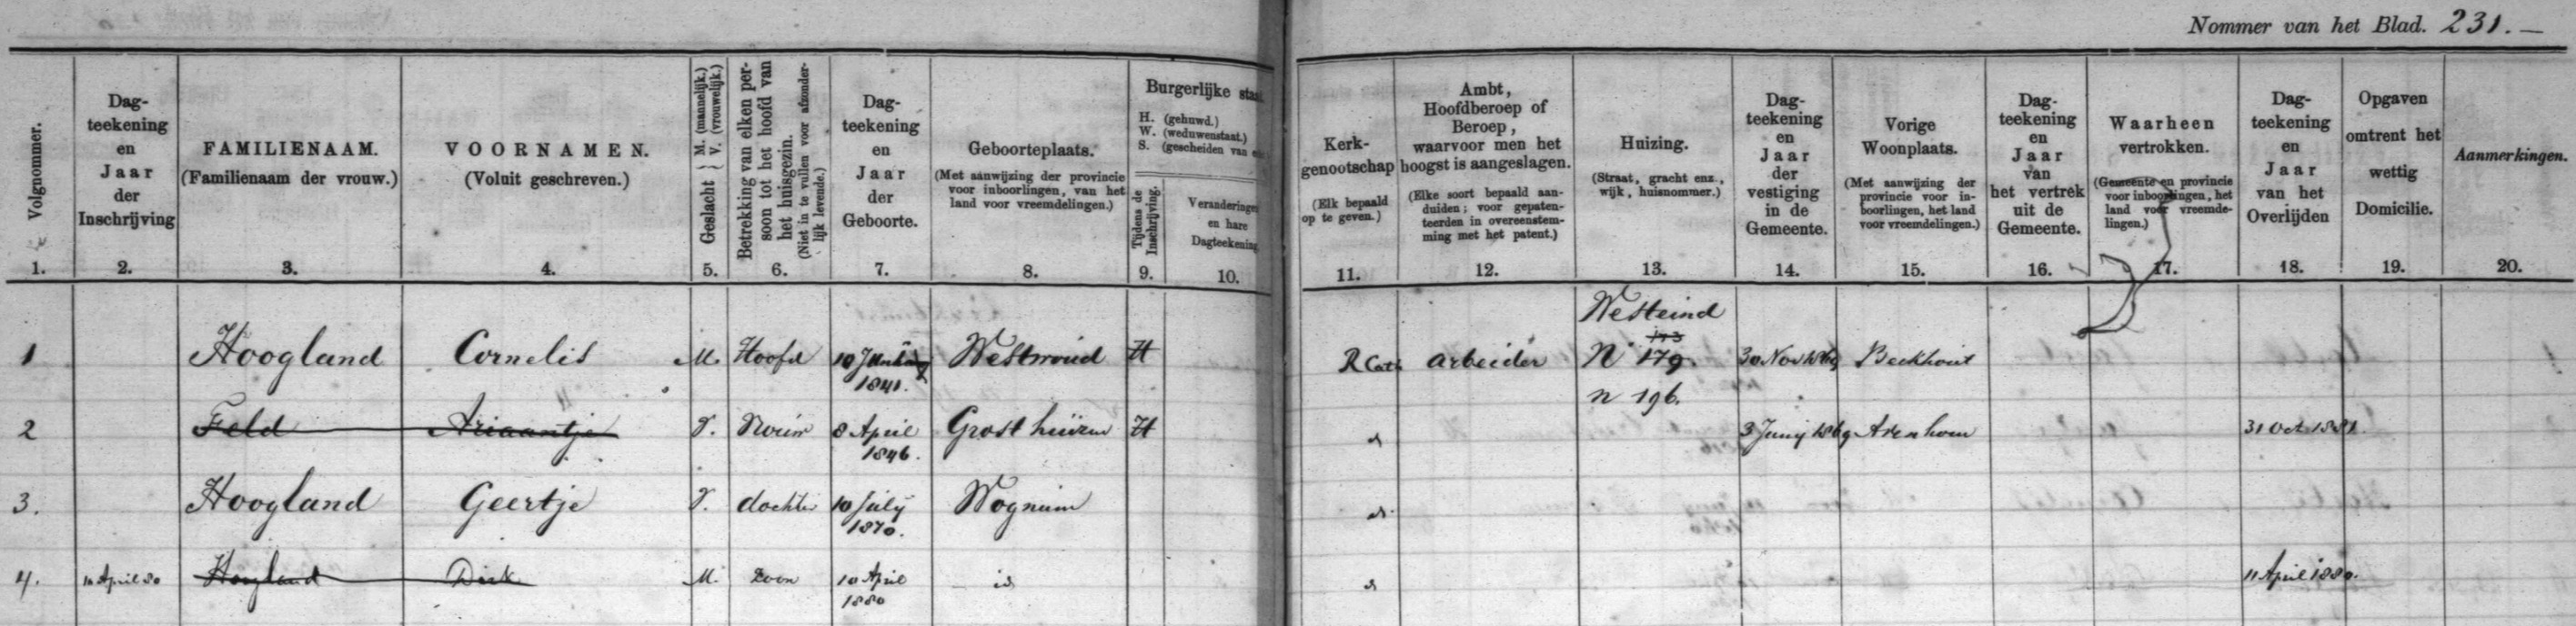 Nommer van het Blad. 231.—
Volgnommer.
Dag-
teekening
en
Jaar
der
Inschrijving
FAMILIENAAM.
(Familienaam der vrouw.)
VOORNAMEN.
(Voluit geschreven.)
Geslacht } M. (mannelijk.)
V. (vrouwelijk.)
Betrekking van elken per-
soon tot het hoofd van
het huisgezin.
(Niet in te vullen voor afzonder-
lijk levende.)
Dag-
teekening
en
Jaar
der
Geboorte.
Geboorteplaats.
(Met aanwijzing der provincie
voor inboorlingen, van het
land voor vreemdelingen.)
Burgerlijke staat.
H. (gehuwd.)
W. (weduwenstaat.)
S. (gescheiden van
Tijdens de
Inschrijving.
Veranderingen
en hare
Dagteekening
Kerk-
genootschap
(Elk bepaald
op te geven.)
Ambt,
Hoofdberoep of
Beroep,
waarvoor men het
hoogst is aangeslagen.
(Elke soort bepaald aan-
duiden; voor gepaten-
teerden in overeenstem-
ming met het patent.)
Huizing.
(Straat, gracht enz.,
wijk, huisnommer.)
Dag-
teekening
en
Jaar
der
vestiging
in de
Gemeente.
Vorige
Woonplaats.
(Met aanwijzing der
provincie voor in-
boorlingen, het land
voor vreemdelingen.)
Dag-
teekening
en
Jaar
van
het vertrek
uit de
Gemeente.
Waarheen
vertrokken.
(Gemeente en provincie
voor inboorlingen, het
land voor vreemde-
lingen.)
Dag-
teekening
en
Jaar
van het
Overlijden
Opgaven
omtrent het
wettig
Domicilie.
Aanmerkingen.
1. 2. 3. 4. 5. 6. 7. 8. 9. 10. 11. 12. 13. 14. 15. 16. 17. 18. 19. 20.
Westeind
1 Hoogland Cornelis M. Hoofd 10 1841. Westwoud H R Cath arbeider N 179. 30 Nov 1869 Beekhout
n 196.
2 Feld Ariaantje V. 8 April 1846. Grosthuizen H 3 Junij 1869 Avenhorn 31 Oct 1881.
3. Hoogland Geertje V. dochter 10 July 1870. Wognum
4. 10 April 80 Hoogland Dirk M. Zoon 10 April 1880 id 11 April 1880.